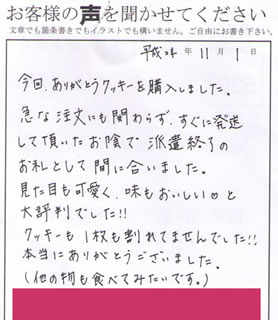 お客様の声を聞かせてください
文章でも箇条書きでもイラストでも構いません。ご自由にお書き下さい。
平成24年 11月 1日
今回、ありがとうクッキーを購入しました。
急な注文にも関わらず、すぐに発送
して頂いたお陰で派遣終了の
お礼として間に合いました。
見た目も可愛く、味もおいしい♡と
大評判でした!!
クッキーも1枚も割れてませんでした!!
本当にありがとうございました。
(他の物も食べてみたいです。)